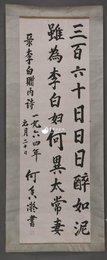 三百六十日日日醉如泥
雖為李白婦何異太常妻
錄李白贈內詩
一九六四年
元月二十日
何香凝書